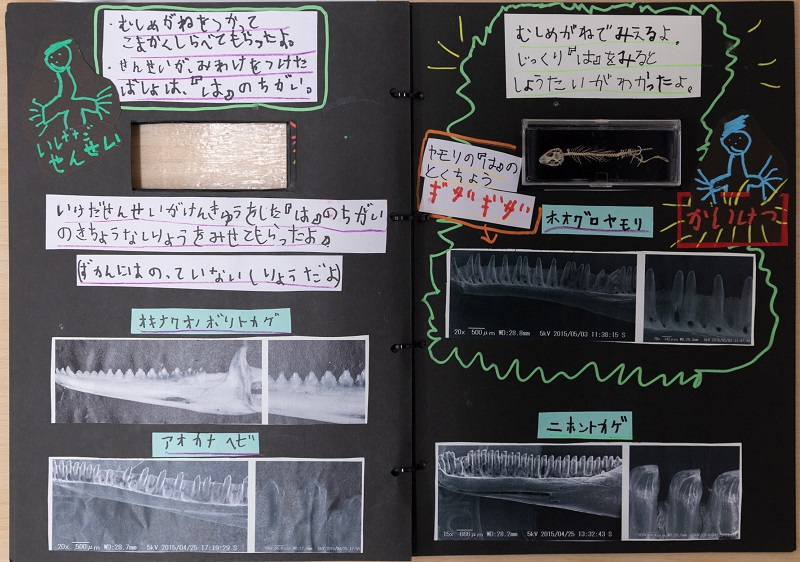 ・むしめがねをつかって
こまかくしらべてもらったよ。
・せんせいが、みわけをつけた
ばしょは、『は』のちがい。
いけだ
せんせい
いけだせんせいがけんきゅうをした『は』のちがい
のきちょうなしりょうをみせてもらったよ。
(ずかんにはのっていないしりょうだよ)
オキナワキノボリトカゲ
アオカナヘビ
20x 500μm WD:28.7mm 5kV 2015/04/25 17:19:29 S
むしめがねでみえるよ。
じっくり『は』をみると
しょうたいがわかったよ。
ヤモリの『は』の
とくちょう
ギザギザ
かいけつ
ホオグロヤモリ
20x 500μm WD:28.8mm 5kV 2015/05/03 11:38:15 S
ニホントカゲ
15x WD:28.2mm 5kV 2015/04/25 13:32:43 S